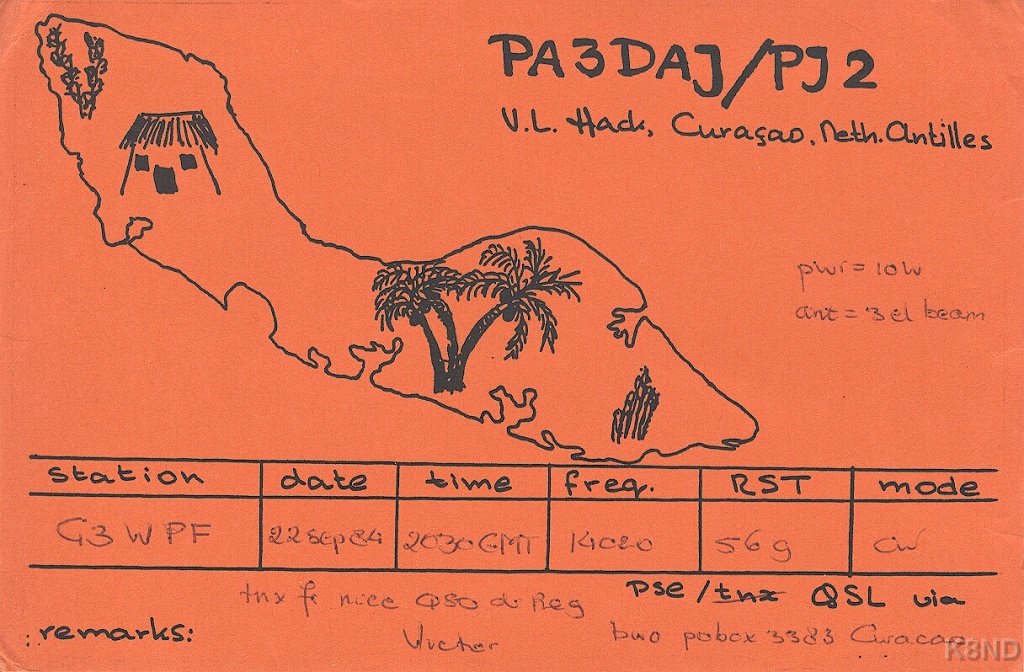 PA3DAJ/PJ2
V.L. Hack, Curaçao, Neth. Antilles
pwr = 10W
ant = 3 el beam
station date time freq. RST mode
G3WPF 22 sep 84 2030 GMT 14020 569 CW
tnx fr nice QSO dr Reg
pse/tnx QSL via
remarks:
Victor
buro pobox 3383 Curacao
K8ND